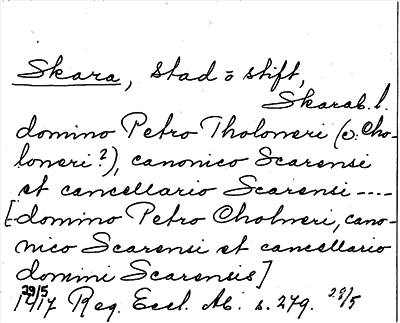 Skara, stad o stift,
Skarab. l.
domino Petro Tholoneri (o: Cho-
loneri?), canonico Scarensi
et cancellario Scarensi ----
[domino Petro Cholneri, cano-
nico Scarensi et cancellario
domini Scarensis]
29/5 1417 Reg. Eccl. Ab. s. 279. 28/5